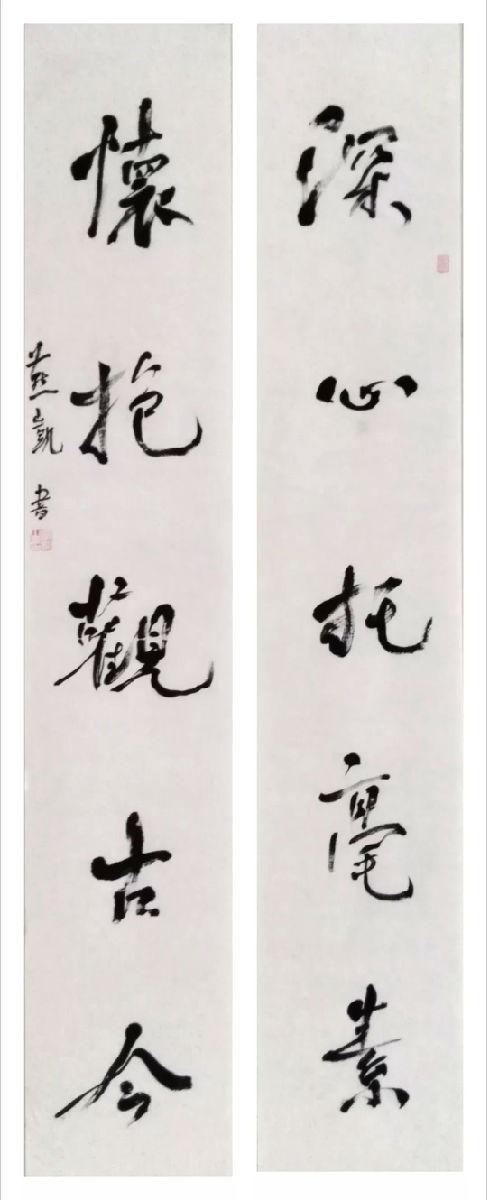 深心托毫素
懷抱觀古今
燕凱書